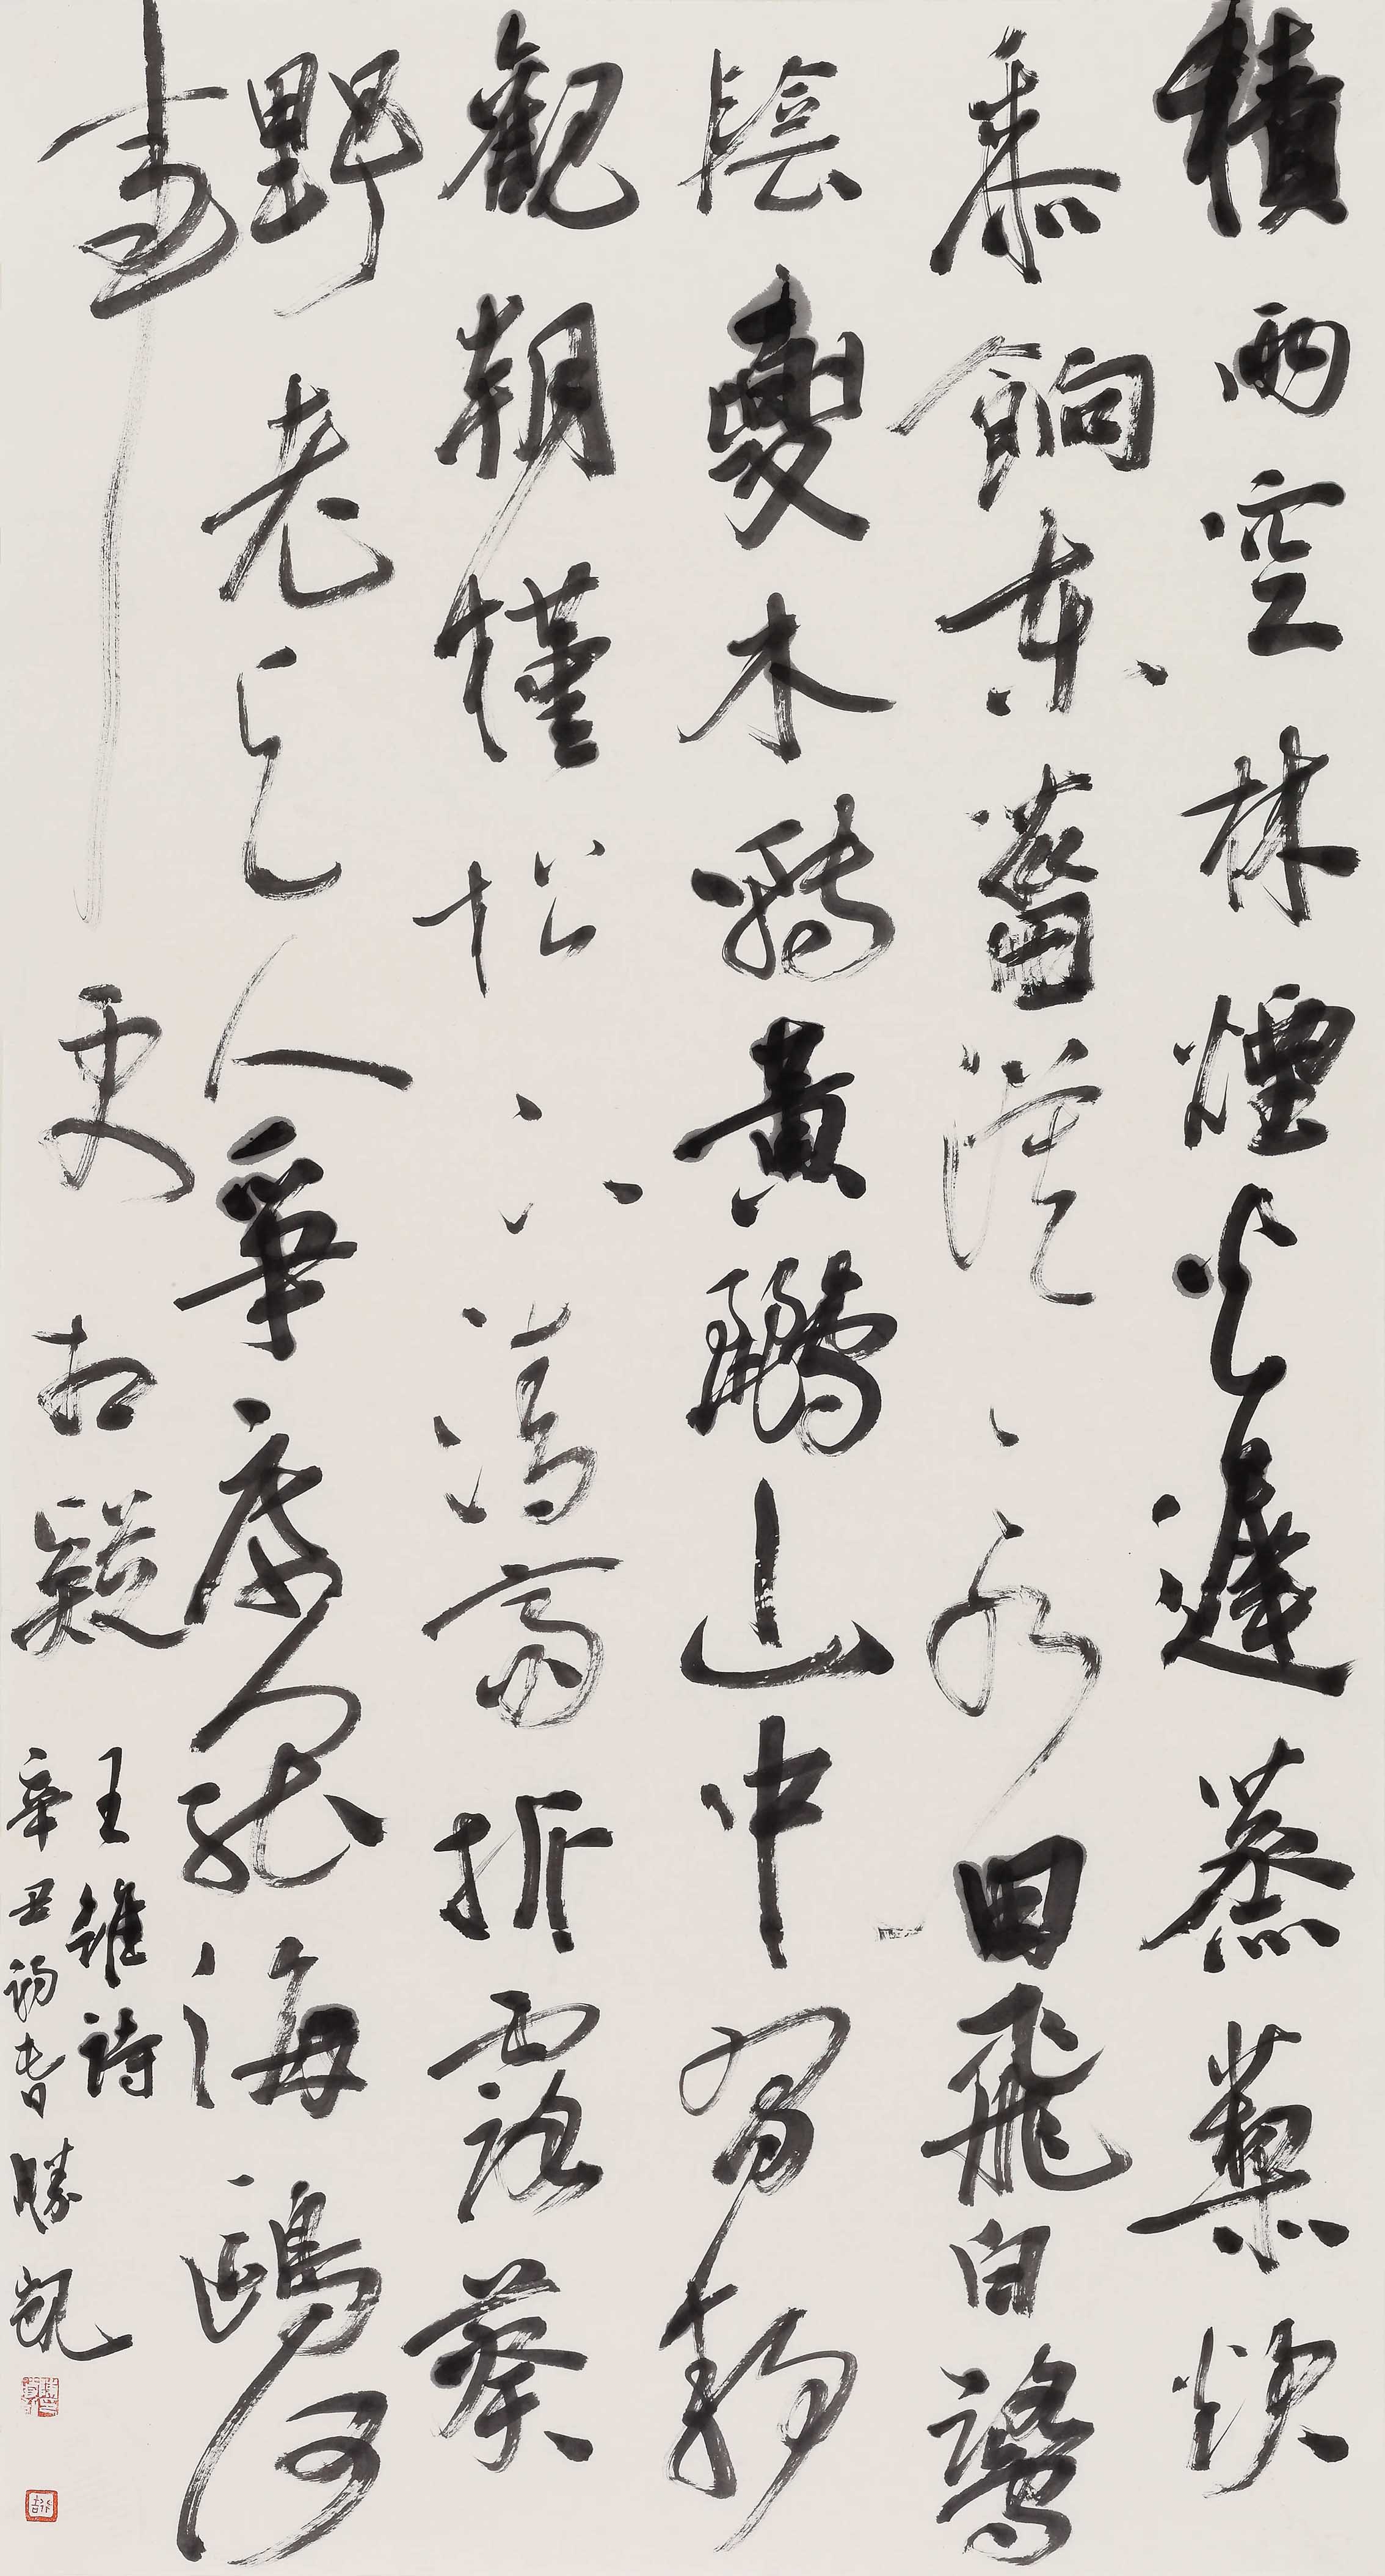 積雨空林煙火遲蒸藜炊
黍餉東菑漠〻水田飛白鷺
陰夏木囀黃鸝山中習靜
觀朝槿松下清齋折露葵
野老与人爭席罷海鷗何
事更相疑
王維詩
辛丑初春勝凱